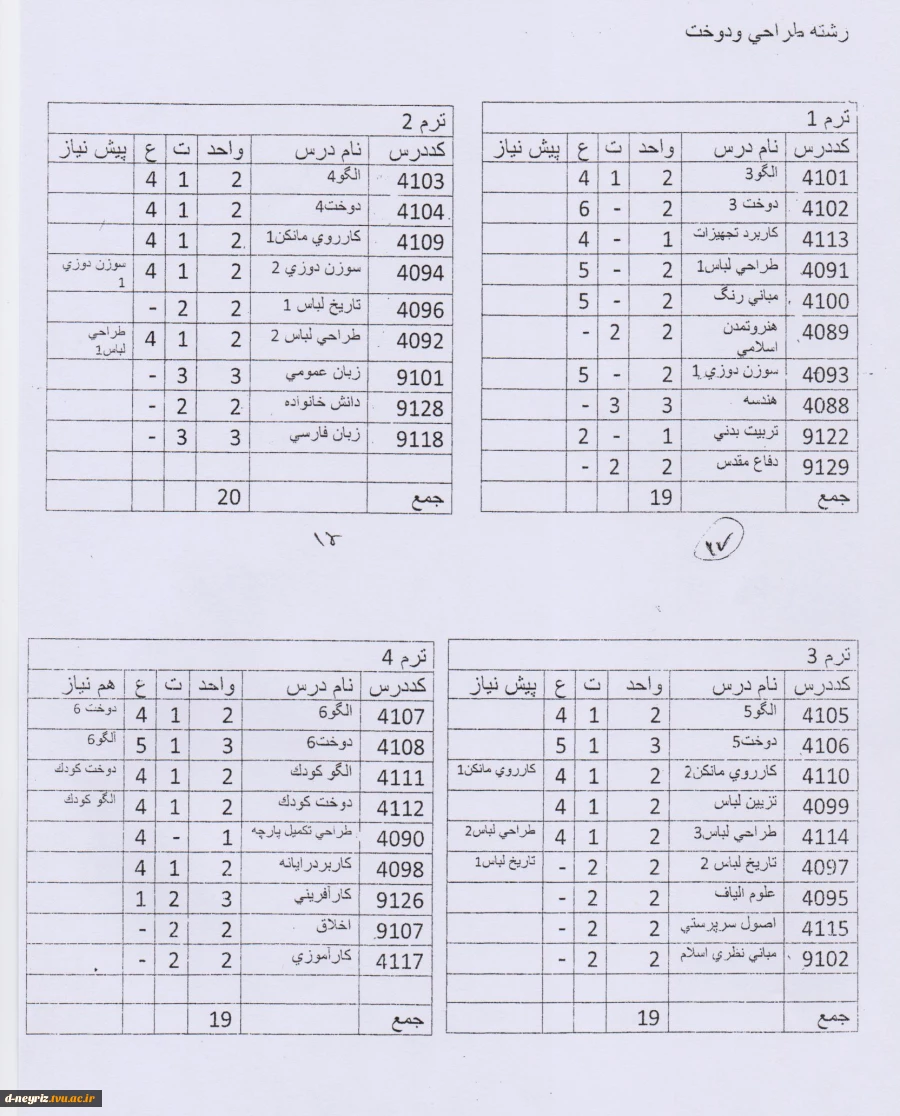 رشته طراحي ودوخت
ترم 1
كددرس نام درس واحد ت ع پيش نياز
4101 الگو3 2 1 4
4102 دوخت 3 2 - 6
4113 كاربرد تجهيزات 1 - 4
4091 طراحي لباس1 2 - 5
4100 مباني رنگ 2 - 5
4089 هنروتمدن 2 2 -
اسلامي
4093 سوزن دوزي 1 2 - 5
4088 هندسه 3 3 -
9122 تربيت بدني 1 - 2
9129 دفاع مقدس 2 2 -
جمع 19
ترم 2
كددرس نام درس واحد ت ع پيش نياز
4103 الگو4 2 1 4
4104 دوخت4 2 1 4
4109 كارروي مانكن1 2 1 4
4094 سوزن دوزي 2 2 1 4 سوزن دوزي
1
4096 تاريخ لباس 1 2 2 -
4092 طراحي لباس 2 2 1 4 طراحي
لباس1
9101 زبان عمومي 3 3 -
9128 دانش خانواده 2 2 -
9118 زبان فارسي 3 3 -
جمع 20
ترم 3
كددرس نام درس واحد ت ع پيش نياز
4105 الگو5 2 1 4
4106 دوخت5 3 1 5
4110 كارروي مانكن2 2 1 4 كارروي مانكن1
4099 تزيين لباس 2 1 4
4114 طراحي لباس3 2 1 4 طراحي لباس2
4097 تاريخ لباس 2 2 2 - تاريخ لباس1
4095 علوم الياف 2 2 -
4115 اصول سرپرستي 2 2 -
9102 مباني نظري اسلام 2 2 -
جمع 19
ترم 4
كددرس نام درس واحد ت ع هم نياز
4107 الگو6 2 1 4 دوخت 6
4108 دوخت6 3 1 5 الگو6
4111 الگو كودك 2 1 4 دوخت كودك
4112 دوخت كودك 2 1 4 الگو كودك
4090 طراحي تكميل پارچه 1 - 4
4098 كاربردرايانه 2 1 4
9126 كارآفريني 3 2 1
9107 اخلاق 2 2 -
4117 كارآموزي 2 2 -
جمع 19
d-neyriz.tvu.ac.ir